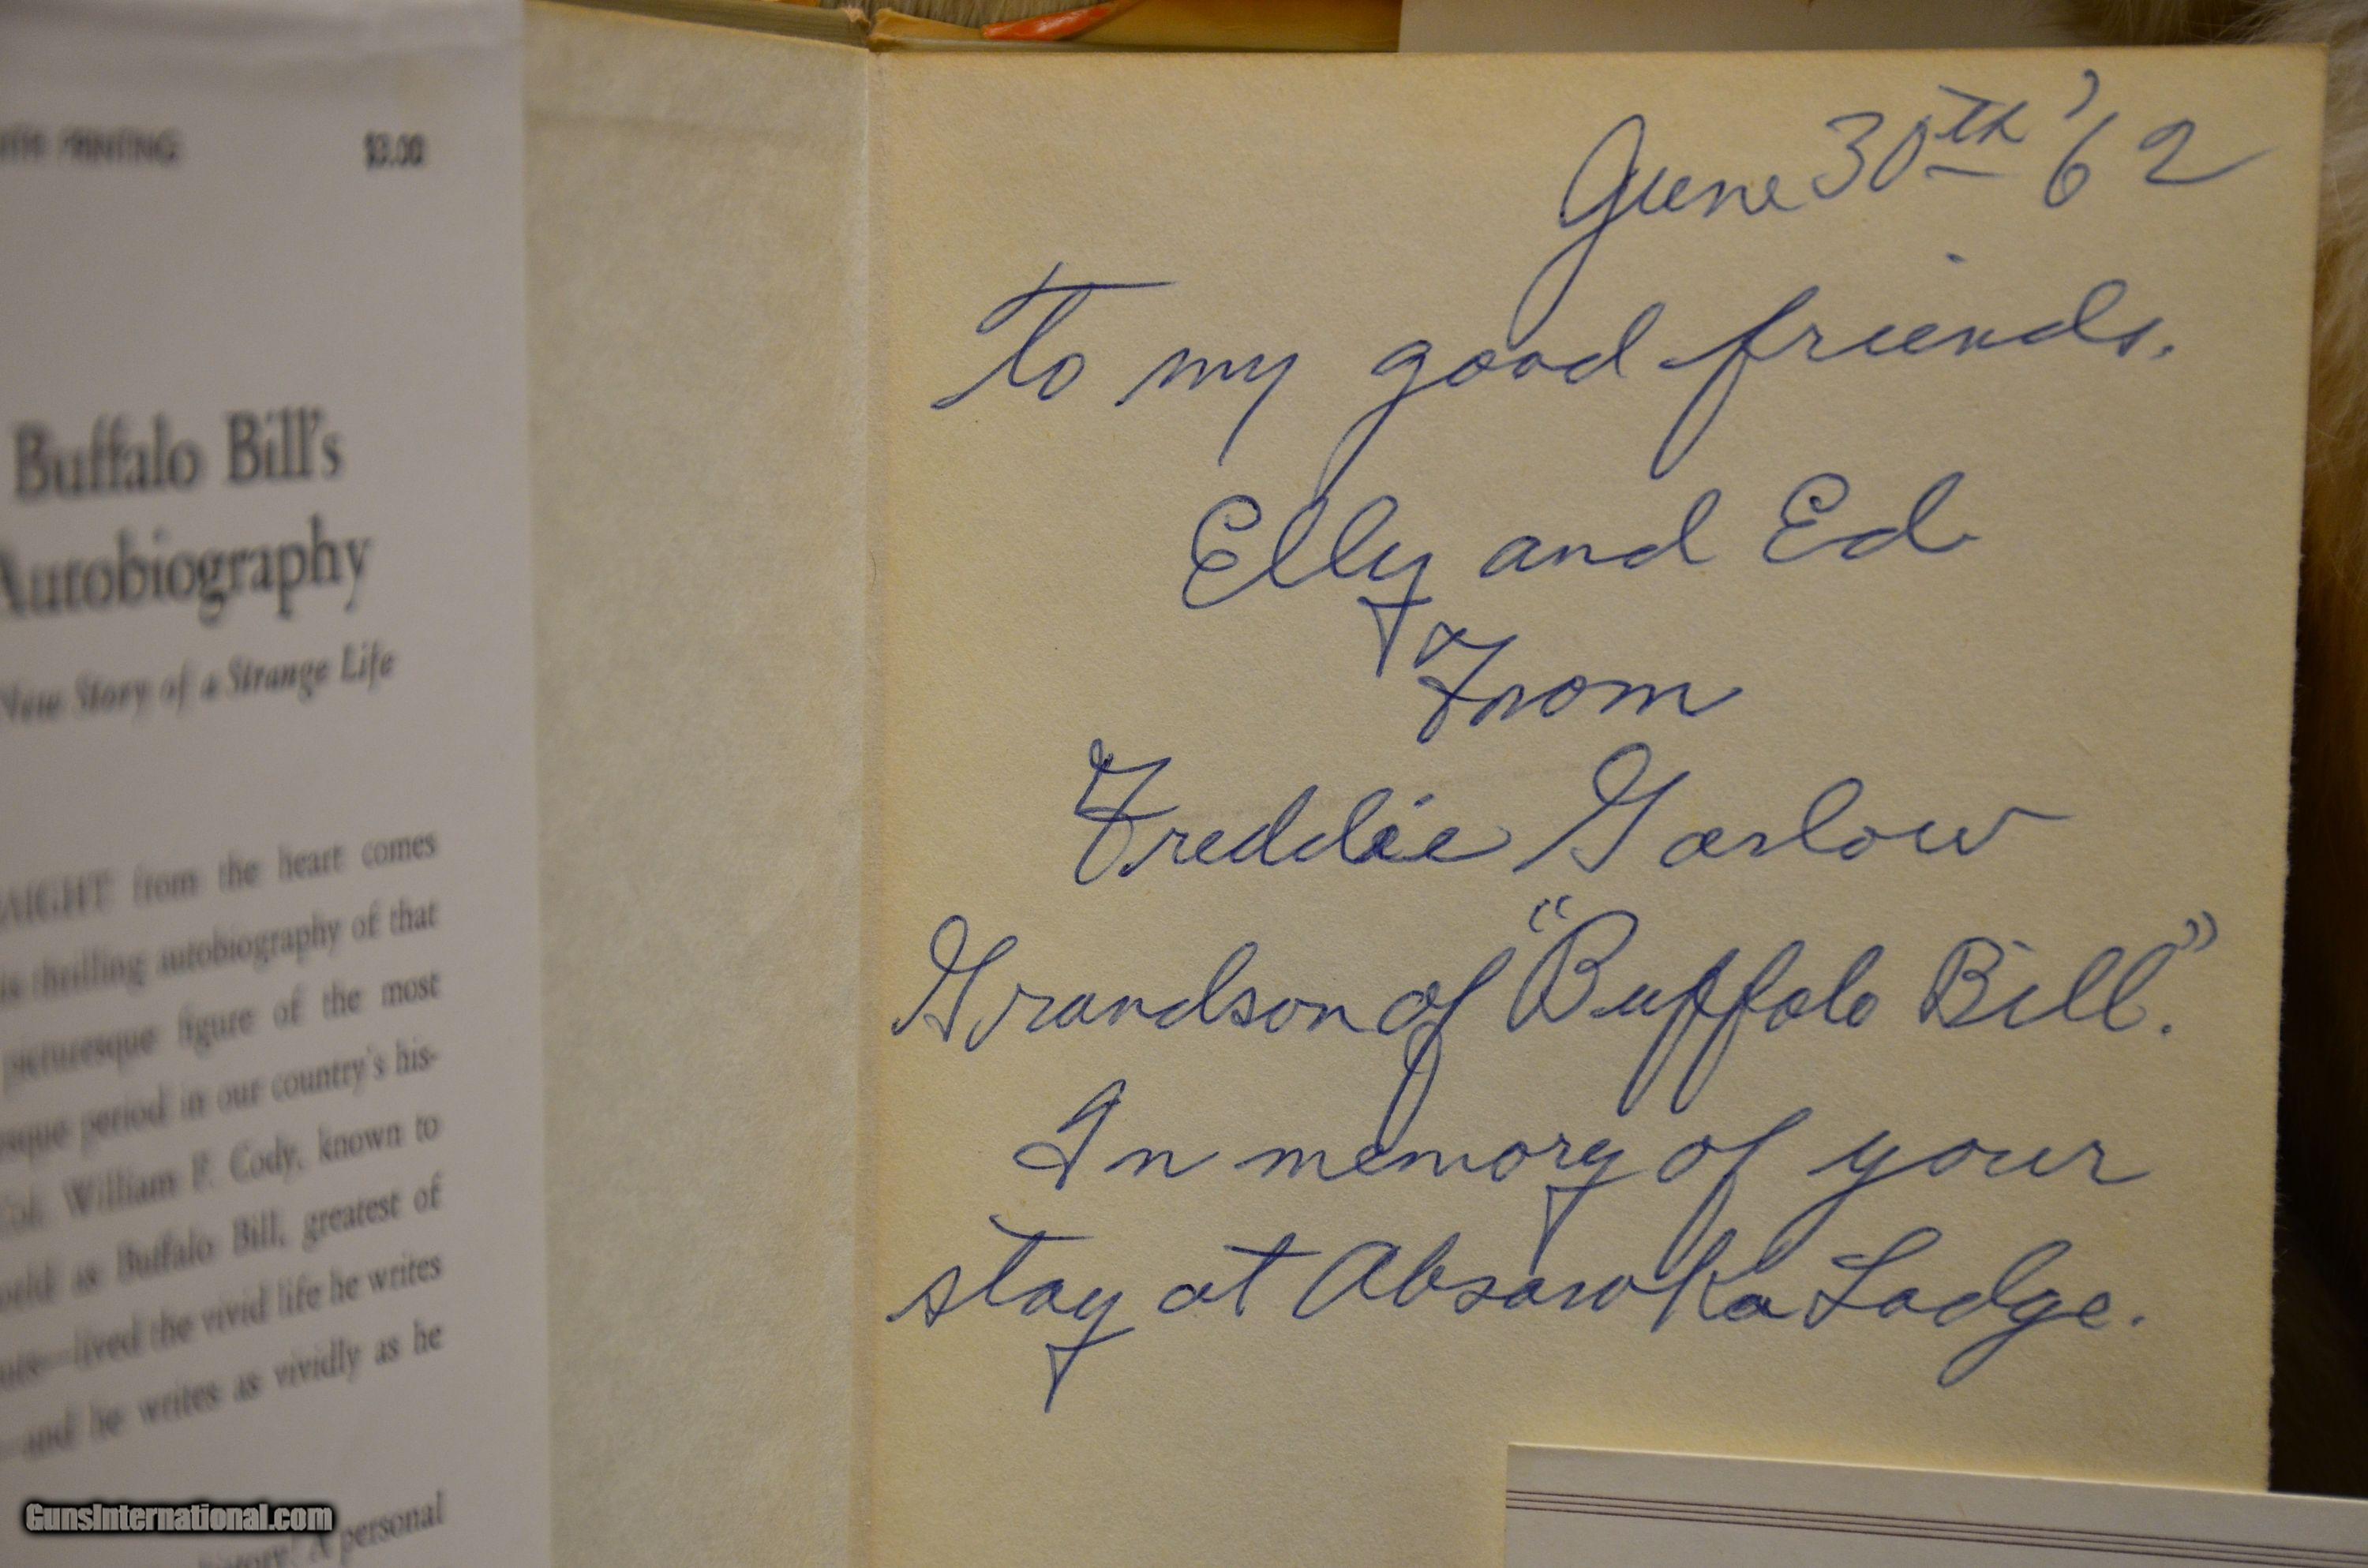 PRINTING $3.00
Buffalo Bill's
Autobiography
New Story of a Strange Life
from the heart comes
thrilling autobiography of that
picturesque figure of the most
period in our country's his-
Col. William F. Cody, known to
as Buffalo Bill, greatest of
—lived the vivid life he writes
—and he writes as vividly as he
A personal
June 30th '62
To my good friends.
Elly and Ed
From
Freddie Garlow
Grandson of "Buffalo Bill."
In memory of your
stay at Absaroka Lodge.
GunsInternational.com